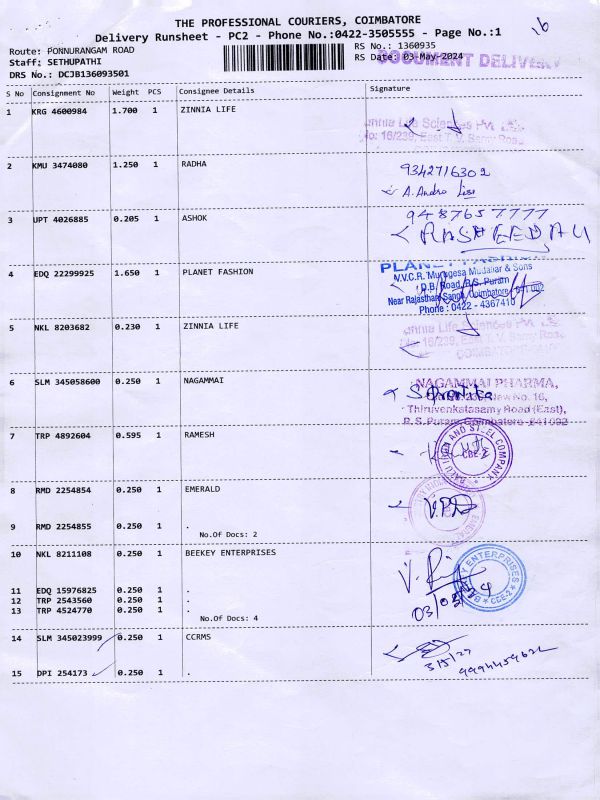 THE PROFESSIONAL COURIERS, COIMBATORE
Delivery Runsheet - PC2 - Phone No.:0422-3505555 - Page No.:1
Route: PONNURANGAM ROAD
RS No.: 1360935
Staff: SETHUPATHI
RS Date: 03-May-2024
DOCUMENT DELIVERY
DRS No.: DCJB136093501
S No Consignment No Weight PCS Consignee Details Signature
1 KRG 4600984 1.700 1 ZINNIA LIFE
Life Sciences Pvt.
16/239, East T.V. Samy Road
2 KMU 3474080 1.250 1 RADHA
9342716302
A. Andro
3 UPT 4026885 0.205 1 ASHOK
9487657777
RASHEED
4 EDQ 22299925 1.650 1 PLANET FASHION
PLANET FASHION
V.V.C.R. Murugesa Mudaliar & Sons
D.B. Road, R.S. Puram
Near Rajasthan Sangh, Coimbatore - 641 002
Phone : 0422 - 4367410
5 NKL 8203682 0.230 1 ZINNIA LIFE
Life Sciences Pvt.
16/239, East T.V. Samy Road
6 SLM 345058600 0.250 1 NAGAMMAI
NAGAMMAI PHARMA,
New No. 16,
Thiruvenkatasamy Road (East),
R.S. Puram, Coimbatore - 641 002
7 TRP 4892604 0.595 1 RAMESH
AND STEEL COMPANY
CBE-2
8 RMD 2254854 0.250 1 EMERALD
9 RMD 2254855 0.250 1 .
No.Of Docs: 2
10 NKL 8211108 0.250 1 BEEKEY ENTERPRISES
ENTERPRISES
CBE-2
11 EDQ 15976825 0.250 1 .
12 TRP 2543560 0.250 1 .
13 TRP 4524770 0.250 1 .
No.Of Docs: 4
14 SLM 345023999 0.250 1 CCRMS
15 DPI 254173 0.250 1 .